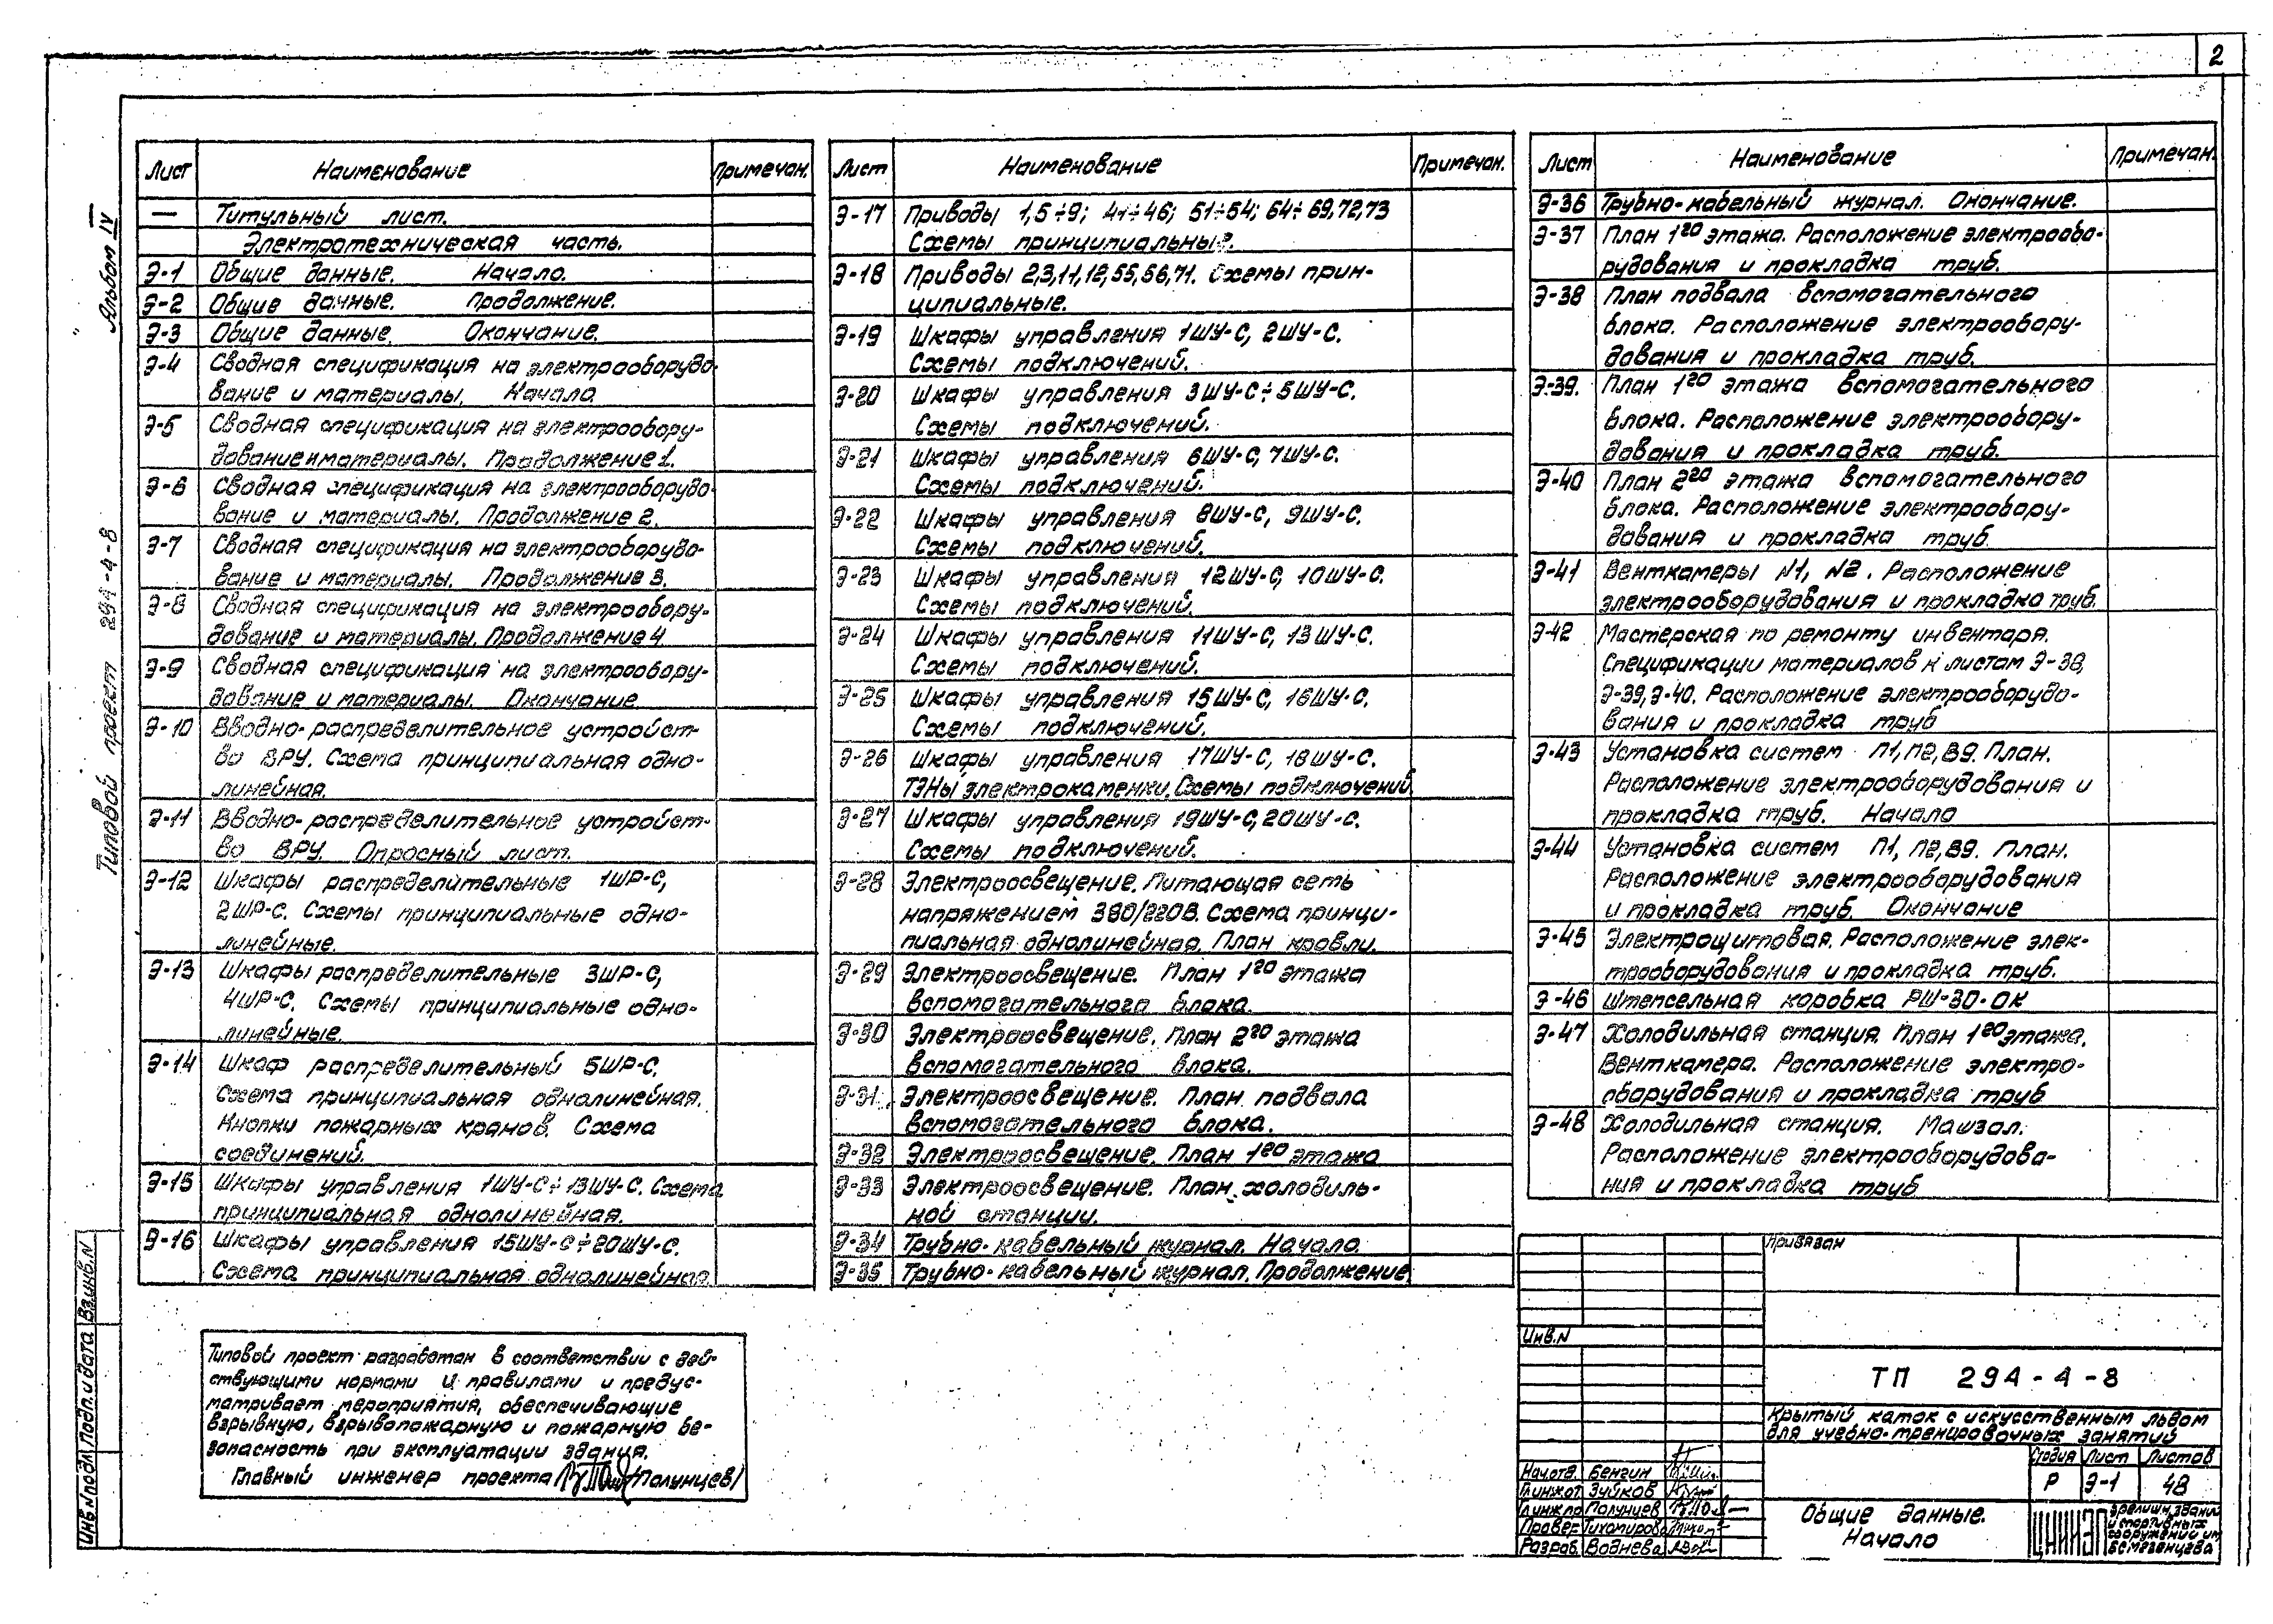 2
Альбом IV
Типовой проект 294-4-8
Взинв.N
Подп. и дата
Инв.N подл
Лист Наименование Примечан.
— Титульный лист.
Электротехническая часть.
Э-1 Общие данные. Начало.
Э-2 Общие данные. Продолжение.
Э-3 Общие данные. Окончание.
Э-4 Сводная спецификация на электрооборудо-
вание и материалы. Начало.
Э-5 Сводная спецификация на электрообору-
дование и материалы. Продолжение 1.
Э-6 Сводная спецификация на электрооборудо-
вание и материалы. Продолжение 2.
Э-7 Сводная спецификация на электрооборудо-
вание и материалы. Продолжение 3.
Э-8 Сводная спецификация на электрообору-
дование и материалы. Продолжение 4.
Э-9 Сводная спецификация на электрообору-
дование и материалы. Окончание
Э-10 Вводно-распределительное устройст-
во ВРУ. Схема принципиальная одно-
линейная.
Э-11 Вводно-распределительное устройст-
во ВРУ. Опросный лист.
Э-12 Шкафы распределительные 1ШР-С,
2ШР-С. Схемы принципиальные одно-
линейные.
Э-13 Шкафы распределительные 3ШР-С,
4ШР-С. Схемы принципиальные одно-
линейные.
Э-14 Шкаф распределительный 5ШР-С.
Схема принципиальная однолинейная.
Кнопки пожарных кранов. Схема
соединений.
Э-15 Шкафы управления 1ШУ-С÷13ШУ-С. Схема
принципиальная однолинейная.
Э-16 Шкафы управления 15ШУ-С÷20ШУ-С.
Схема принципиальная однолинейная.
Лист Наименование Примечан.
Э-17 Приводы 1,5÷9; 41÷46; 51÷54; 64÷69,72,73
Схемы принципиальные.
Э-18 Приводы 2,3,11,12,55,56,71. Схемы прин-
ципиальные.
Э-19 Шкафы управления 1ШУ-С, 2ШУ-С.
Схемы подключений.
Э-20 Шкафы управления 3ШУ-С÷5ШУ-С.
Схемы подключений.
Э-21 Шкафы управления 6ШУ-С, 7ШУ-С.
Схемы подключений.
Э-22 Шкафы управления 8ШУ-С, 9ШУ-С.
Схемы подключений.
Э-23 Шкафы управления 12ШУ-С, 10ШУ-С.
Схемы подключений.
Э-24 Шкафы управления 11ШУ-С, 13ШУ-С.
Схемы подключений.
Э-25 Шкафы управления 15ШУ-С, 16ШУ-С.
Схемы подключений.
Э-26 Шкафы управления 17ШУ-С, 18ШУ-С.
ТЭНы электрокаменки. Схемы подключений
Э-27 Шкафы управления 19ШУ-С, 20ШУ-С.
Схемы подключений.
Э-28 Электроосвещение. Питающая сеть
напряжением 380/220В. Схема принци-
пиальная однолинейная. План кровли.
Э-29 Электроосвещение. План 1го этажа
вспомогательного блока.
Э-30 Электроосвещение. План 2го этажа
вспомогательного блока.
Э-31 Электроосвещение. План подвала
вспомогательного блока.
Э-32 Электроосвещение. План 1го этажа
Э-33 Электроосвещение. План холодиль-
ной станции.
Э-34 Трубно-кабельный журнал. Начало.
Э-35 Трубно-кабельный журнал. Продолжение.
Лист Наименование Примечан.
Э-36 Трубно-кабельный журнал. Окончание.
Э-37 План 1го этажа. Расположение электрообо-
рудования и прокладка труб.
Э-38 План подвала вспомогательного
блока. Расположение электрообору-
дования и прокладка труб.
Э-39. План 1го этажа вспомогательного
блока. Расположение электрообору-
дования и прокладка труб.
Э-40 План 2го этажа вспомогательного
блока. Расположение электрообору-
дования и прокладка труб.
Э-41 Венткамеры N1, N2. Расположение
электрооборудования и прокладка труб.
Э-42 Мастерская по ремонту инвентаря.
Спецификации материалов к листам Э-38,
Э-39, Э-40. Расположение электрооборудо-
вания и прокладка труб
Э-43 Установка систем П1, П2, В9. План.
Расположение электрооборудования и
прокладка труб. Начало
Э-44 Установка систем П1, П2, В9. План.
Расположение электрооборудования
и прокладка труб. Окончание
Э-45 Электрощитовая. Расположение элек-
трооборудования и прокладка труб.
Э-46 Штепсельная коробка РШ-30-ОК
Э-47 Холодильная станция. План 1го этажа.
Венткамера. Расположение электро-
оборудования и прокладка труб
Э-48 Холодильная станция. Машзал.
Расположение электрооборудова-
ния и прокладка труб
Типовой проект разработан в соответствии с дей-
ствующими нормами и правилами и предус-
матривает мероприятия, обеспечивающие
взрывную, взрывопожарную и пожарную бе-
зопасность при эксплуатации здания.
Главный инженер проекта /Полунцев/
Привязан
Инв.N
ТП 294-4-8
Крытый каток с искусственным льдом
для учебно-тренировочных занятий
Стадия Лист Листов
Р Э-1 48
Нач.отд. Бенгин
Гл.инж.от Зуйков
Гл.инж.пр Полунцев
Провер Тихомирова
Разраб. Воднева
Общие данные.
Начало
ЦНИИЭП
зрелищн. зданий
и спортивных
сооружений им.
Б.С. Мезенцева